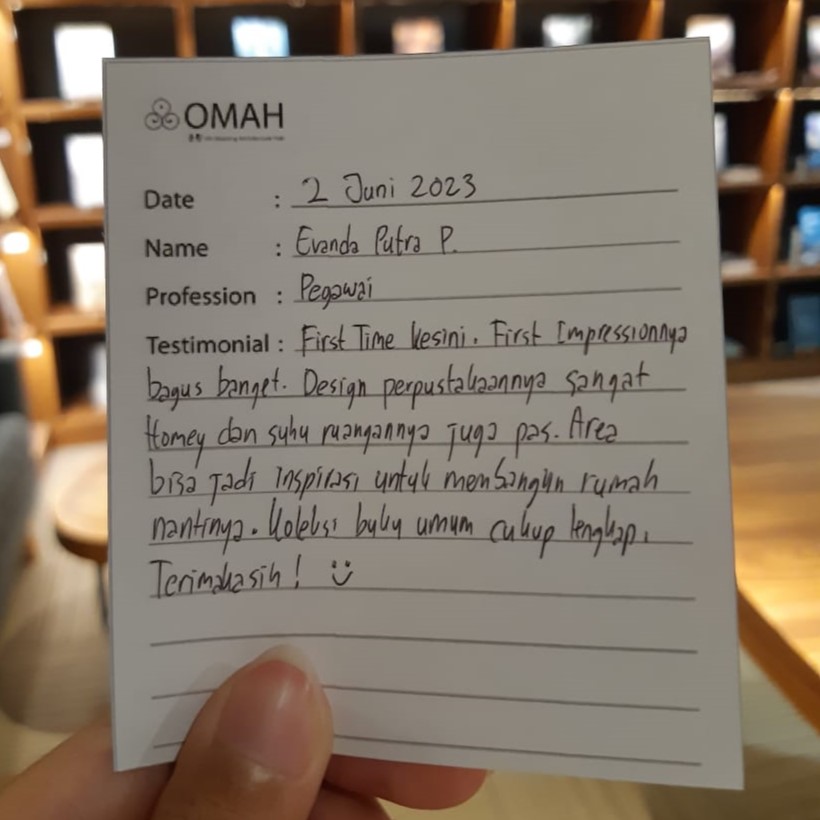 OMAH
Date : 2 Juni 2023
Name : Evanda Putra P.
Profession : Pegawai
Testimonial : First Time kesini. First Impressionnya
bagus banget. Design perpustakaannya sangat
Homey dan suhu ruangannya juga pas. Area
bisa jadi inspirasi untuk membangun rumah
nantinya. Koleksi buku umum cukup lengkap.
Terimakasih! :)